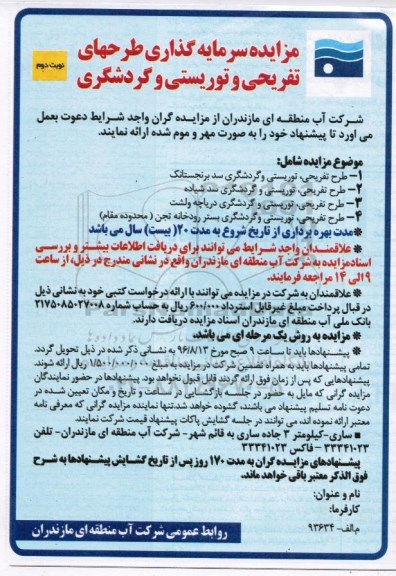 مزایده سرمایه گذاری طرحهای
تفریحی و توریستی و گردشگری
نوبت دوم
شرکت آب منطقه ای مازندران از مزایده گران واجد شرایط دعوت بعمل
می آورد تا پیشنهاد خود را به صورت مهر و موم شده ارائه نمایند.
موضوع مزایده شامل:
۱- طرح تفریحی، توریستی وگردشگری سد برنجستانک
۲- طرح تفریحی، توریستی و گردشگری سد شیاده
۳- طرح تفریحی، توریستی و گردشگری دریاچه ولشت
۴- طرح تفریحی، توریستی وگردشگری بستر رودخانه تجن ( محدوده مقام)
*مدت بهره برداری از تاریخ شروع به مدت ۲۰(بیست) سال می باشد
*علاقمندان واجد شرایط می توانند برای دریافت اطلاعات بیشتر و بررسی
اسنادمزایده به شرکت آب منطقه ای مازندران واقع در نشانی مندرج در ذیل، از ساعت
۹ الی ۱۴ مراجعه فرمایند.
* علاقمندان به شرکت در مزایده می توانند با ارائه درخواست کتبی خود به نشانی ذیل
در قبال پرداخت مبلغ غیرقابل استرداد ۶۰۰/۰۰۰ ریال به حساب شماره ۲۱۷۵۰۸۵۰۲۷۰۰۸
بانک ملی آب منطقه ای مازندران اسناد مزایده دریافت دارند.
* مزایده به روش یک مرحله ای می باشد.
* پیشنهادها باید تا ساعت ۹ صبح مورخ ۹۶/۸/۱۳ به نشانی ذکر شده در ذیل تحویل گردد.
تمامی پیشنهادها باید به همراه تضمین شرکت در مزایده به مبلغ ۱/۵۰۰/۰۰۰/۰۰۰ ریال ارائه شوند.
پیشنهادهایی که پس از زمان فوق ارائه گردند قابل قبول نخواهد بود. پیشنهادها در حضور نمایندگان
مزایده گرانی که مایل به حضور در جلسه بازگشایی در ساعت و تاریخ و مکان تعیین شده در
دعوت نامه تسلیم پیشنهاد می باشند، گشوده خواهد شد.تنها نماینده مزایده گرانی که معرفی نامه
معتبر ارائه نموده اند، می توانند در جلسه گشایش پاکات پیشنهاد قیمت شرکت نمایند.
* ساری-کیلومتر ۳ جاده ساری به قائم شهر- شرکت آب منطقه ای مازندران- تلفن
۳۳۳۴۱۰۲۳ - فاکس ۳۳۳۴۱۰۲۳
پیشنهادهای مزایده گران به مدت ۱۷۰ روز پس از تاریخ گشایش پیشنهادها به شرح
فوق الذکر معتبر باقی خواهد ماند.
نام و عنوان:
کارفرما:
م.الف- ۹۳۶۳۴
روابط عمومی شرکت آب منطقه ای مازندران